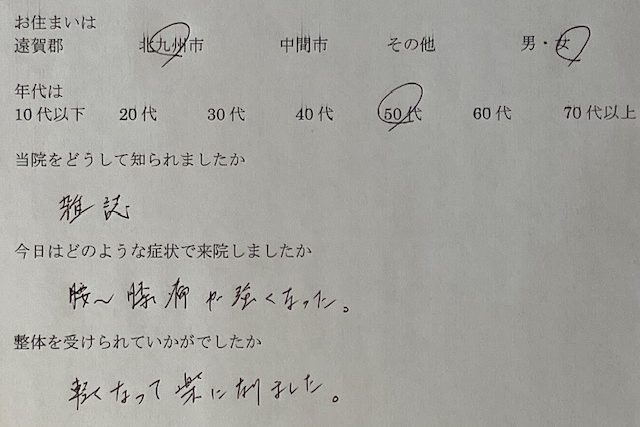 お住まいは
遠賀郡 北九州市 中間市 その他 男・女
年代は
10代以下 20代 30代 40代 50代 60代 70代以上
当院をどうして知られましたか
雑誌
今日はどのような症状で来院しましたか
腰〜膝痛が強くなった。
整体を受けられていかがでしたか
軽くなって楽になりました。